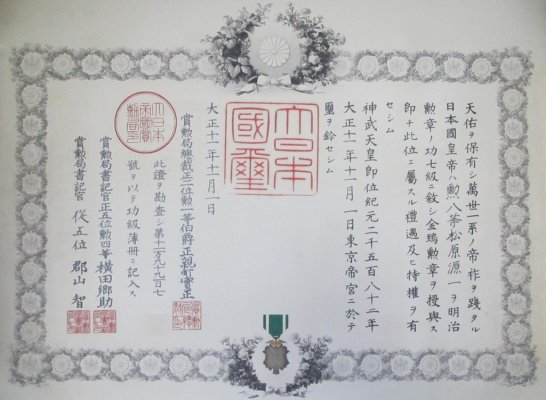 天佑ヲ保有シ萬世一系ノ帝祚ヲ踐タル
日本國皇帝ハ勲八等松原源一ヲ明治
勲章ノ功七級ニ敘シ金鵄勲章ヲ授與ス
即チ此位ニ屬スル禮遇及ヒ特權ヲ有
セシム
神武天皇即位紀元二千五百八十二年
大正十一年十一月一日東京帝宮ニ於テ
璽ヲ鈐セシム
大日本國璽
大正十一年十一月一日
賞勲局總裁正二位勲一等伯爵正親町實正
此證ヲ勘査シ第十一万九千九百七
號ヲ以テ功級簿冊ニ記入ス
賞勲局書記官正五位勲四等横田郷助
賞勲局書記官 從五位 郡山智